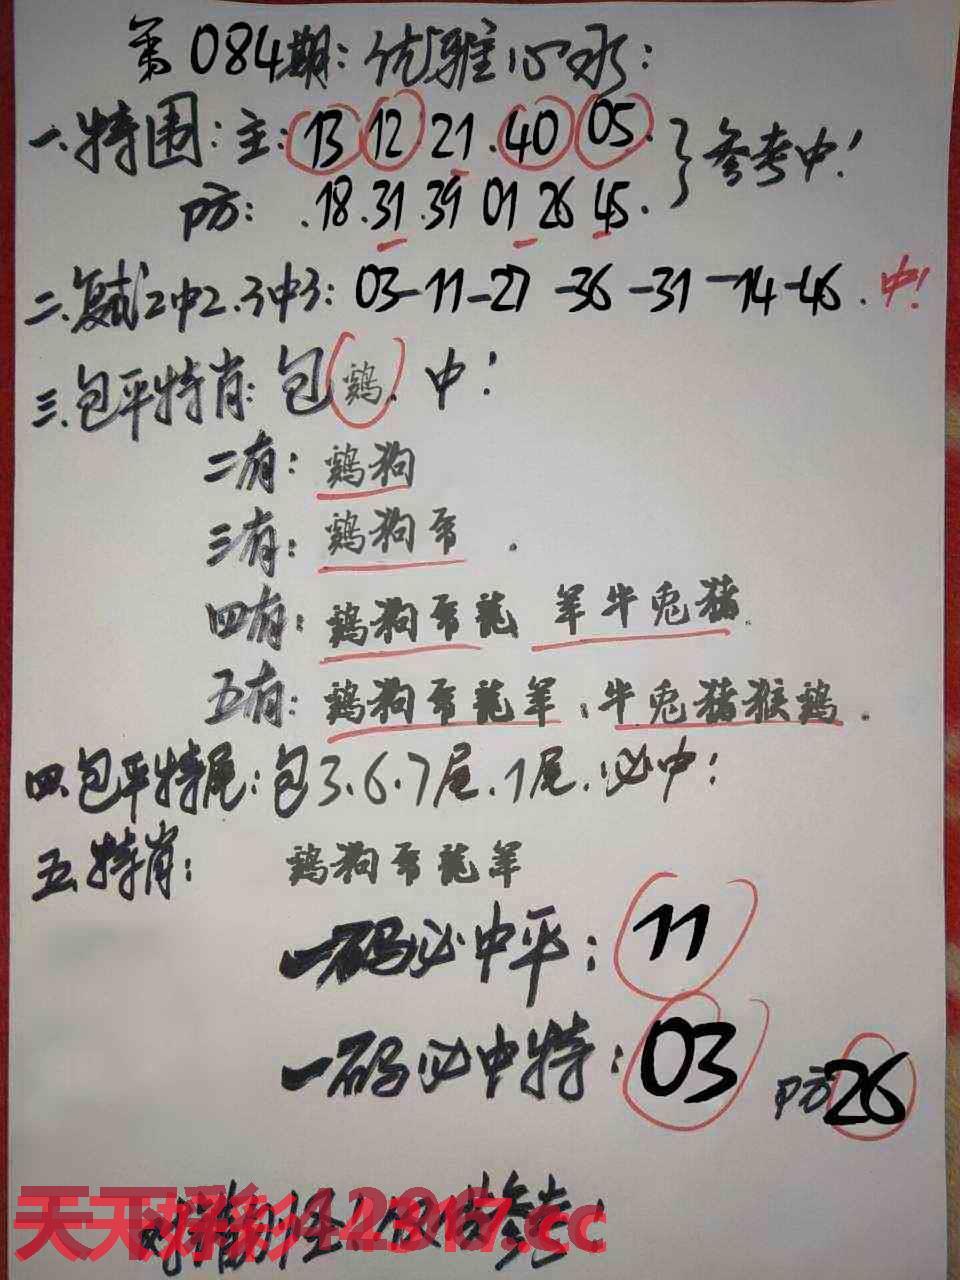 第084期：优雅心水：
一.特围：主：13 12 21.40 05.
防：.18.31.39 01 26 45.
参考中！
二.复式2中2.3中3：03-11-27-36-31-14-46.中!
三.包平特肖：包鸡.中！
二有：鸡狗
三有：鸡狗.
四有：鸡狗龍 羊牛兎猪.
五有：鸡狗龍羊；牛兎猪猴鸡.
四.包平特尾：包3.6.7尾.1尾.必中！
五.特肖：鸡狗龍羊
一码必中平：11
一码必中特：03 防26
天下彩 .cc
参考！